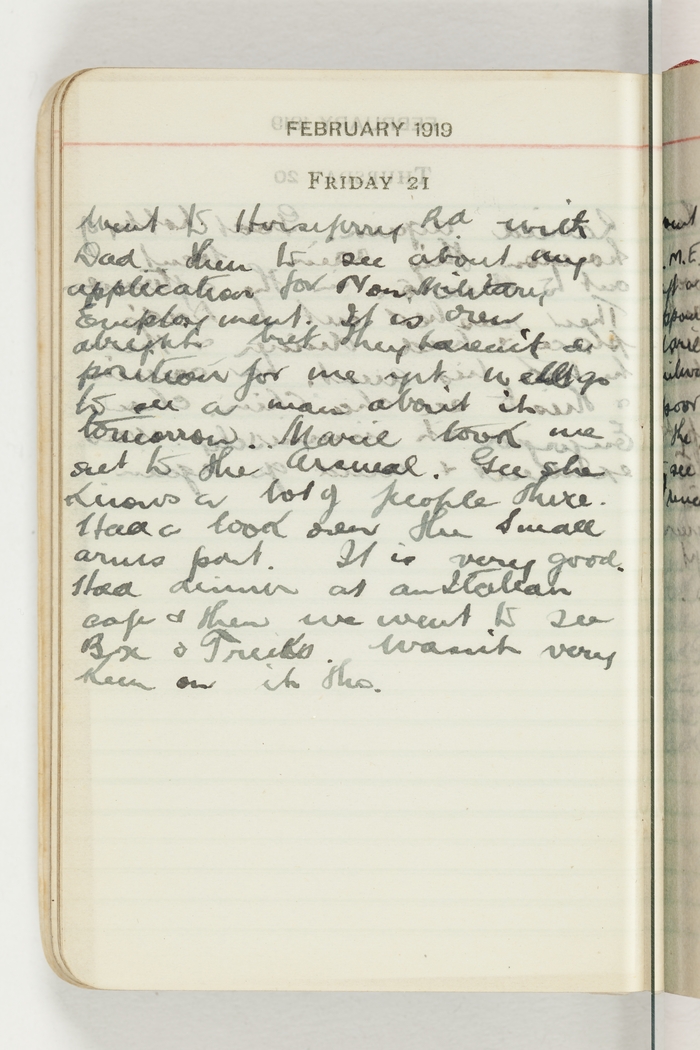 FEBRUARY 1919
FRIDAY 21
Went to Horseferry Rd with
Dad. then to see about my
application for Non. Military
Employment. It is
alright but they haven't a
position for me yet. Will go
to see a man about it
tomorrow. Marie took me
out to the Arsenal. Gee she
knows a lot of people there.
Had a look over the Small
arms part. It is very good.
Had dinner at an Italian
cafe & then we went to see
Box o Tricks. Wasn't very
keen on it tho.